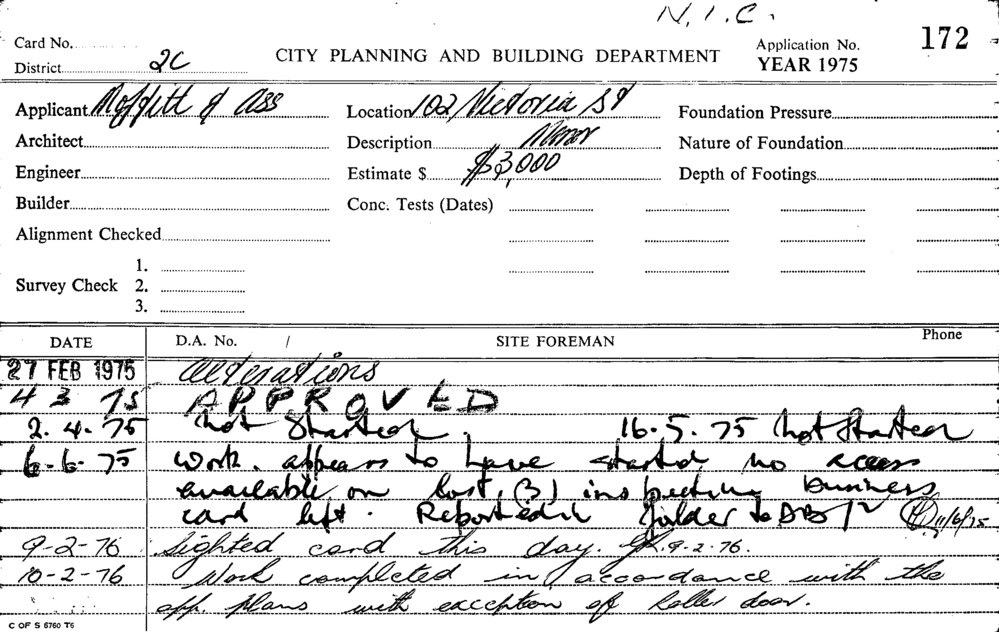 N.I.C.
Card No. CITY PLANNING AND BUILDING DEPARTMENT Application No. 172
District 2C YEAR 1975
Applicant Moffitt & Ass Location 102 Victoria St Foundation Pressure
Architect Description Minor Nature of Foundation
Engineer Estimate $ $3,000 Depth of Footings
Builder Conc. Tests (Dates)
Alignment Checked
1.
Survey Check 2.
3.
DATE D.A. No. / SITE FOREMAN Phone
27 FEB 1975 Alterations
4 3 75 APPROVED
2.4.75 Not Started. 16.5.75 Not Started
6.6.75 Work. appears to have started no access
available on last (3) inspections business
card left. Reported in folder to DB 11/6/75
9-2-76 Sighted card this day. 9.2.76.
10-2-76 Work completed in accordance with the
app. plans with exception of Roller door.
C OF S 6760 T6